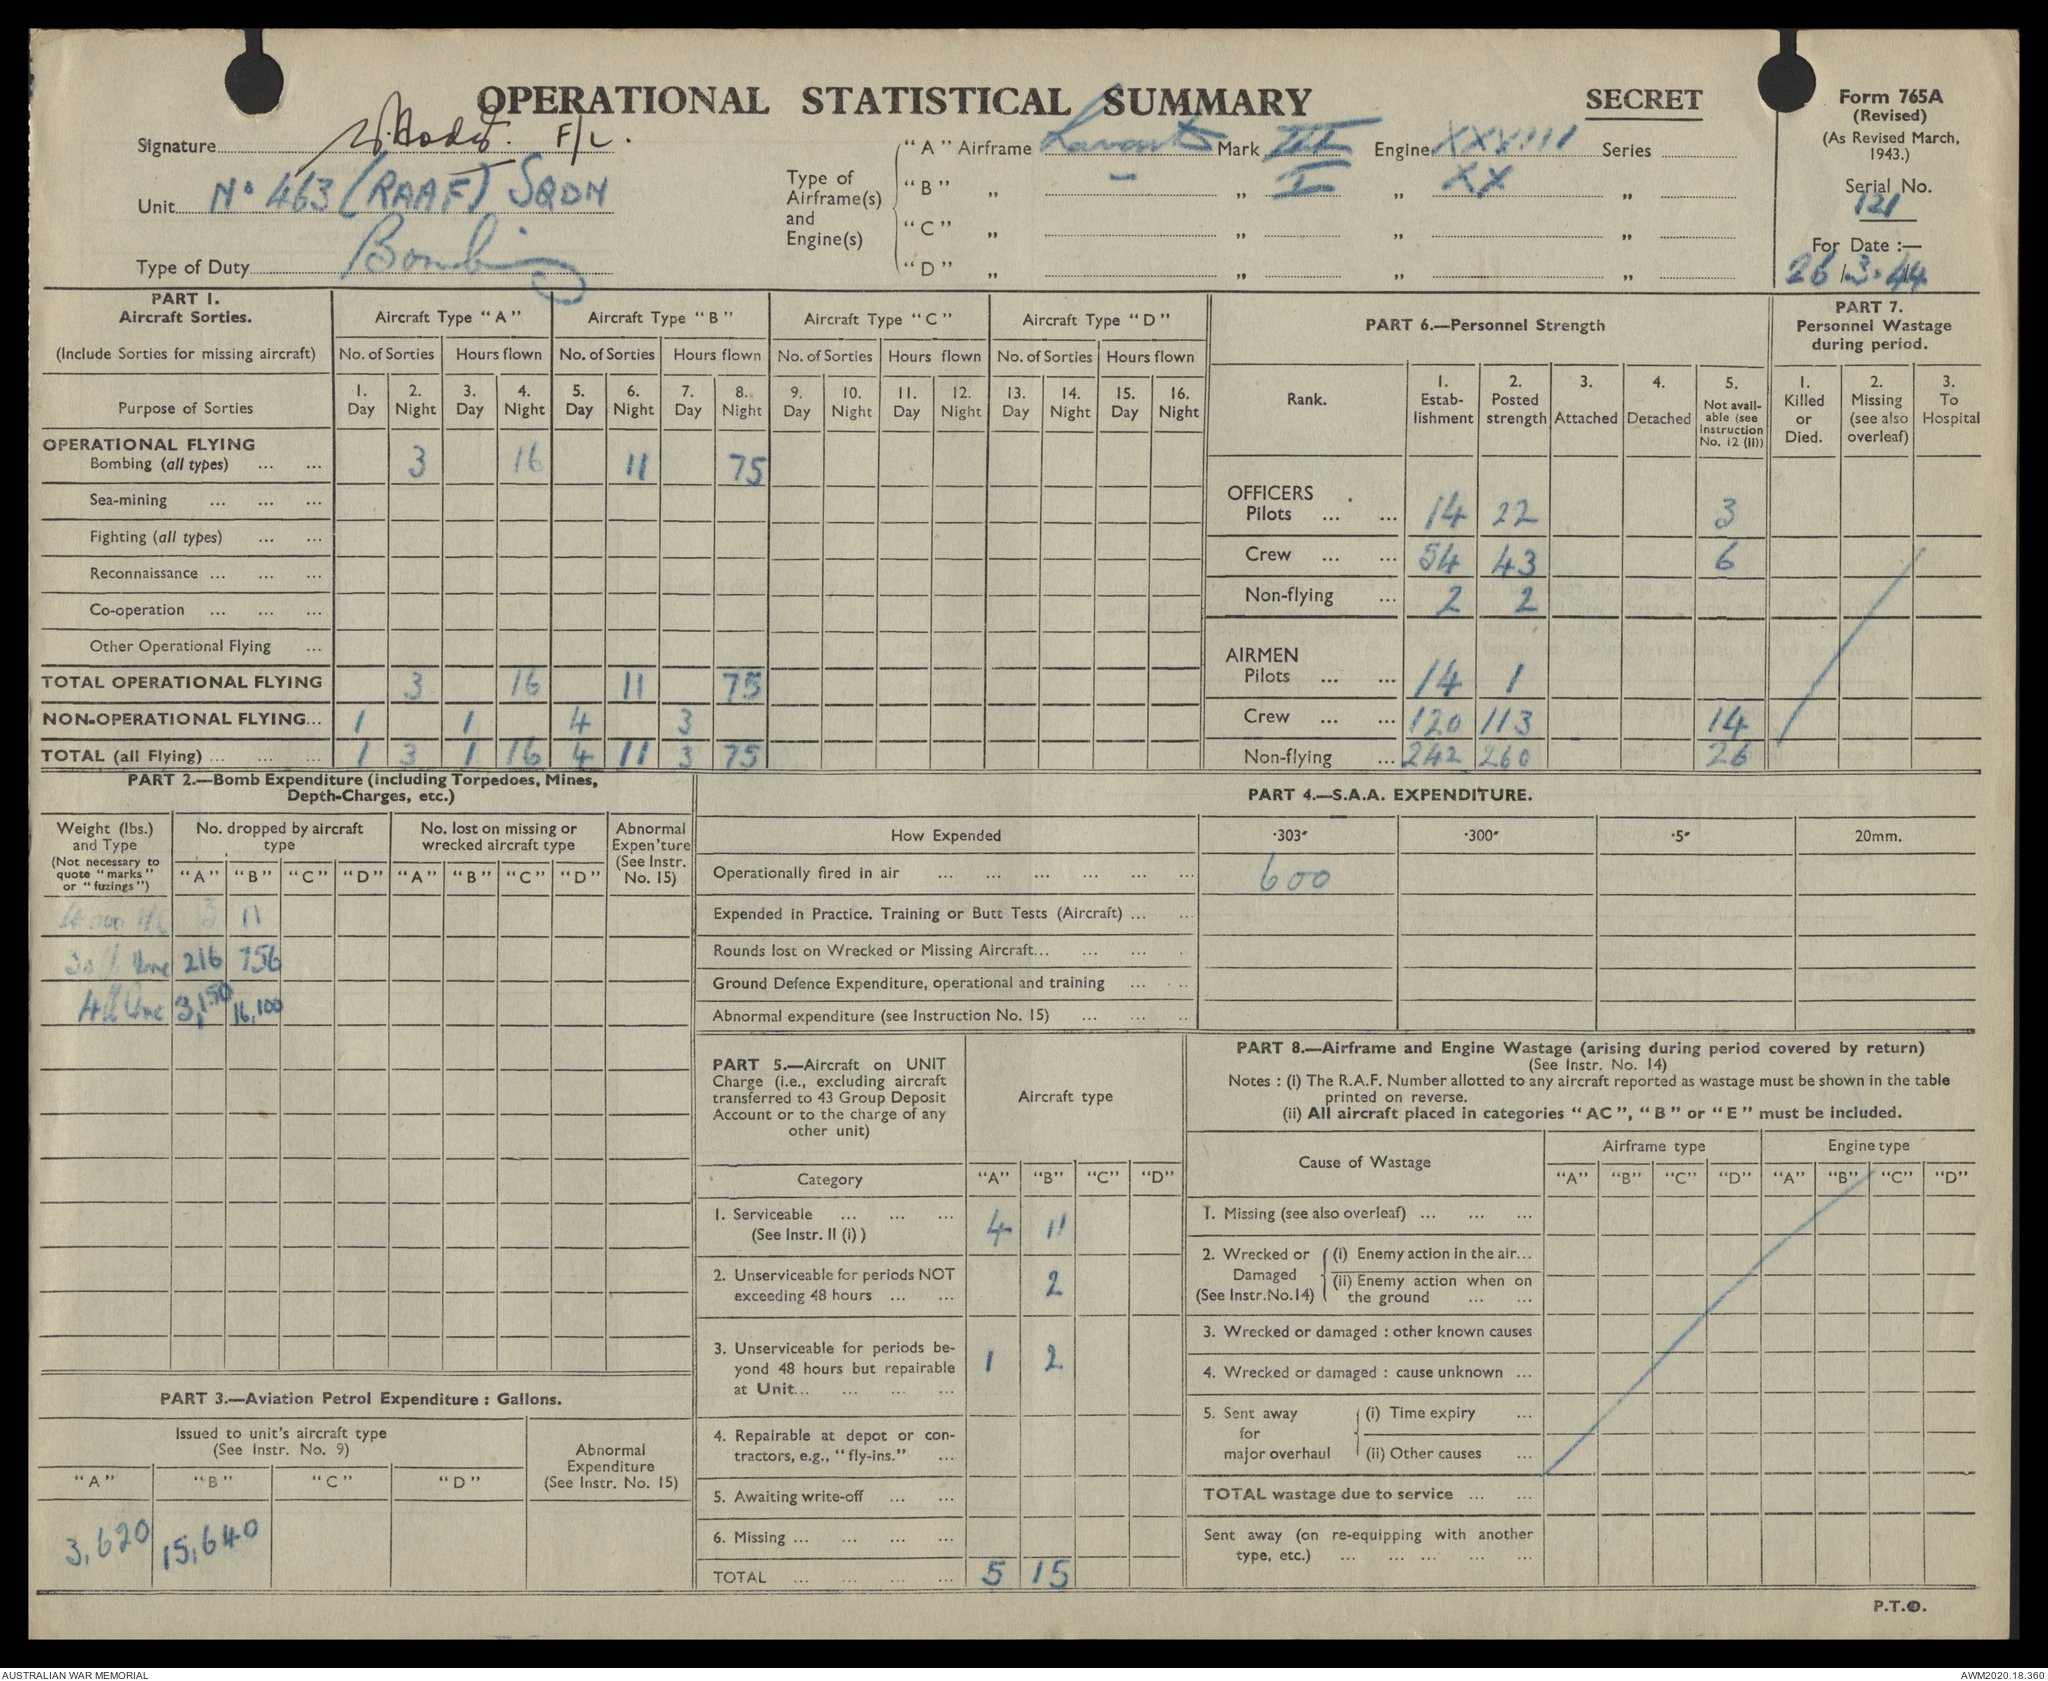 OPERATIONAL STATISTICAL SUMMARY
SECRET
Form 765A
(Revised)
(As Revised March,
1943.)
Serial No.
121
For Date :—
26/3.44
Signature F/L.
Unit No 463 (RAAF) SQDN
Type of Duty Bombing
Type of
Airframe(s)
and
Engine(s)
"A" Airframe Lancaster Mark III Engine XXVIII Series
"B" „ – „ I „ XX „
"C" „ „ „ „
"D" „ „ „ „
PART 1.
Aircraft Sorties.
(Include Sorties for missing aircraft)
Purpose of Sorties
Aircraft Type "A" Aircraft Type "B" Aircraft Type "C" Aircraft Type "D"
No. of Sorties Hours flown No. of Sorties Hours flown No. of Sorties Hours flown No. of Sorties Hours flown
1. 2. 3. 4. 5. 6. 7. 8. 9. 10. 11. 12. 13. 14. 15. 16.
Day Night Day Night Day Night Day Night Day Night Day Night Day Night Day Night
OPERATIONAL FLYING
Bombing (all types) ... ... 3 16 11 75
Sea-mining ... ... ...
Fighting (all types) ... ...
Reconnaissance ... ... ...
Co-operation ... ... ...
Other Operational Flying ...
TOTAL OPERATIONAL FLYING 3 16 11 75
NON-OPERATIONAL FLYING... 1 1 4 3
TOTAL (all Flying) ... ... ... 1 3 1 16 4 11 3 75
PART 6.—Personnel Strength
Rank.
1.
Estab-
lishment
2.
Posted
strength
3.
Attached
4.
Detached
5.
Not avail-
able (see
Instruction
No. 12 (II))
OFFICERS
Pilots ... ... 14 22 3
Crew ... ... 54 43 6
Non-flying ... 2 2
AIRMEN
Pilots ... ... 14 1
Crew ... ... 120 113 14
Non-flying ... 242 260 26
PART 7.
Personnel Wastage
during period.
1.
Killed
or
Died.
2.
Missing
(see also
overleaf)
3.
To
Hospital
PART 2.—Bomb Expenditure (including Torpedoes, Mines,
Depth-Charges, etc.)
Weight (lbs.)
and Type
(Not necessary to
quote "marks"
or "fuzings")
No. dropped by aircraft
type
No. lost on missing or
wrecked aircraft type
Abnormal
Expen'ture
(See Instr.
No. 15)
"A" "B" "C" "D" "A" "B" "C" "D"
4,000 HC 3 11
30 lb Inc 216 756
4lb Inc 3,150 16,100
PART 3.—Aviation Petrol Expenditure : Gallons.
Issued to unit's aircraft type
(See Instr. No. 9)
Abnormal
Expenditure
(See Instr. No. 15)
"A" "B" "C" "D"
3,620 15,640
PART 4.—S.A.A. EXPENDITURE.
How Expended ·303" ·300" ·5" 20mm.
Operationally fired in air ... ... ... ... ... ... 600
Expended in Practice. Training or Butt Tests (Aircraft) ... ...
Rounds lost on Wrecked or Missing Aircraft... ... ... ...
Ground Defence Expenditure, operational and training ... ...
Abnormal expenditure (see Instruction No. 15) ... ... ...
PART 5.—Aircraft on UNIT
Charge (i.e., excluding aircraft
transferred to 43 Group Deposit
Account or to the charge of any
other unit)
Aircraft type
Category "A" "B" "C" "D"
1. Serviceable ... ... ...
(See Instr. II (i) ) 4 11
2. Unserviceable for periods NOT
exceeding 48 hours ... ... 2
3. Unserviceable for periods be-
yond 48 hours but repairable
at Unit... ... ... ... 1 2
4. Repairable at depot or con-
tractors, e.g., "fly-ins." ...
5. Awaiting write-off ... ...
6. Missing ... ... ... ...
TOTAL ... ... ... ... 5 15
PART 8.—Airframe and Engine Wastage (arising during period covered by return)
(See Instr. No. 14)
Notes : (i) The R.A.F. Number allotted to any aircraft reported as wastage must be shown in the table
printed on reverse.
(ii) All aircraft placed in categories "AC", "B" or "E" must be included.
Cause of Wastage
Airframe type Engine type
"A" "B" "C" "D" "A" "B" "C" "D"
1. Missing (see also overleaf) ... ... ...
2. Wrecked or
Damaged
(See Instr.No.14)
(i) Enemy action in the air...
(ii) Enemy action when on
the ground ... ...
3. Wrecked or damaged : other known causes
4. Wrecked or damaged : cause unknown ...
5. Sent away
for
major overhaul
(i) Time expiry ...
(ii) Other causes ...
TOTAL wastage due to service ... ...
Sent away (on re-equipping with another
type, etc.) ... ... ... ... ...
P.T.O.
AUSTRALIAN WAR MEMORIAL
AWM2020.18.360